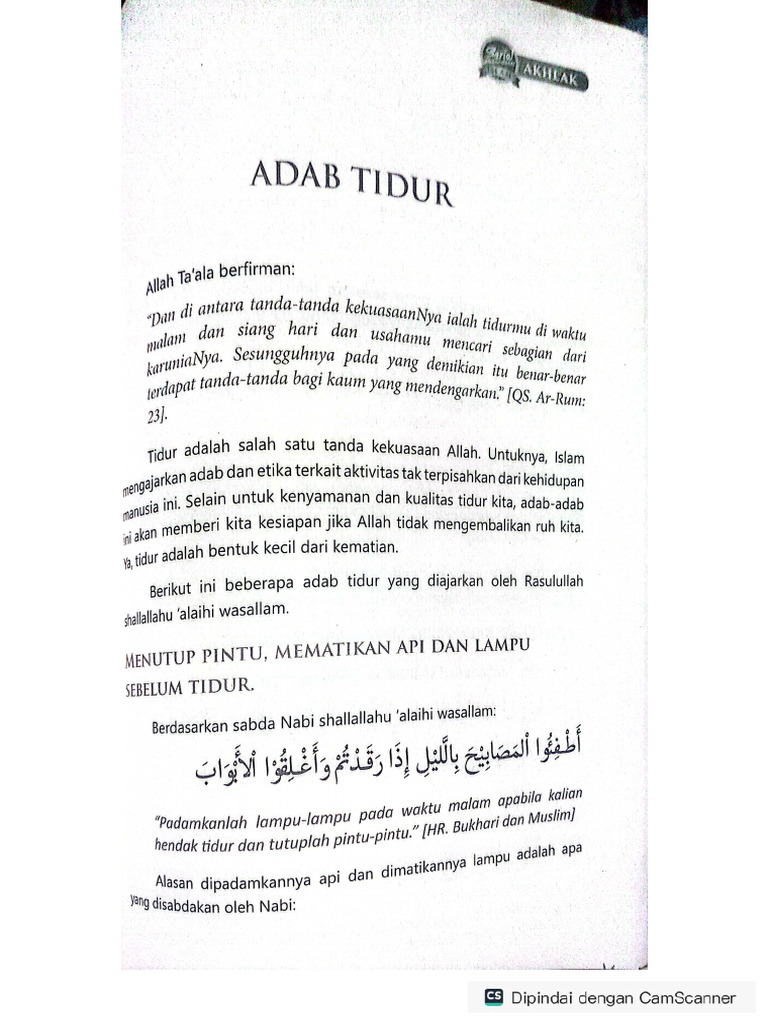 AKHLAK
ADAB TIDUR
Allah Ta'ala berfirman:
"Dan di antara tanda-tanda kekuasaanNya ialah tidurmu di waktu
malam dan siang hari dan usahamu mencari sebagian dari
karuniaNya. Sesungguhnya pada yang demikian itu benar-benar
terdapat tanda-tanda bagi kaum yang mendengarkan." [QS. Ar-Rum:
23].
Tidur adalah salah satu tanda kekuasaan Allah. Untuknya, Islam
mengajarkan adab dan etika terkait aktivitas tak terpisahkan dari kehidupan
manusia ini. Selain untuk kenyamanan dan kualitas tidur kita, adab-adab
ini akan memberi kita kesiapan jika Allah tidak mengembalikan ruh kita.
Ya, tidur adalah bentuk kecil dari kematian.
Berikut ini beberapa adab tidur yang diajarkan oleh Rasulullah
shallallahu 'alaihi wasallam.
MENUTUP PINTU, MEMATIKAN API DAN LAMPU
SEBELUM TIDUR.
Berdasarkan sabda Nabi shallallahu 'alaihi wasallam:
أَطْفِئُوا الْمَصَابِيْحَ بِاللَّيْلِ إِذَا رَقَدْتُمْ وَأَغْلِقُوْا الْأَبْوَابَ
"Padamkanlah lampu-lampu pada waktu malam apabila kalian
hendak tidur dan tutuplah pintu-pintu." [HR. Bukhari dan Muslim]
Alasan dipadamkannya api dan dimatikannya lampu adalah apa
yang disabdakan oleh Nabi:
CS Dipindai dengan CamScanner